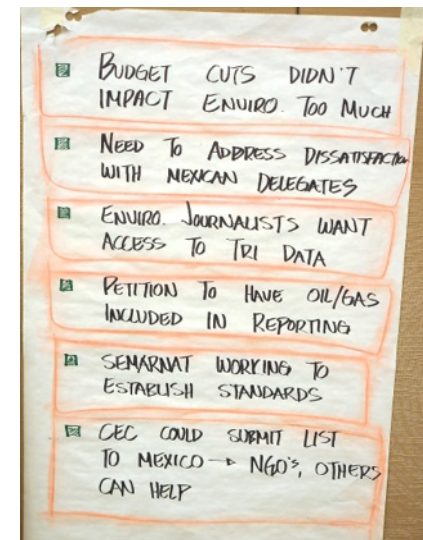 BUDGET CUTS DIDN'T
IMPACT ENVIRO. TOO MUCH
NEED TO ADDRESS DISSATISFACTION
WITH MEXICAN DELEGATES
ENVIRO. JOURNALISTS WANT
ACCESS TO TRI DATA
PETITION TO HAVE OIL/GAS
INCLUDED IN REPORTING
SEMARNAT WORKING TO
ESTABLISH STANDARDS
CEC COULD SUBMIT LIST
TO MEXICO → NGO'S, OTHERS
CAN HELP